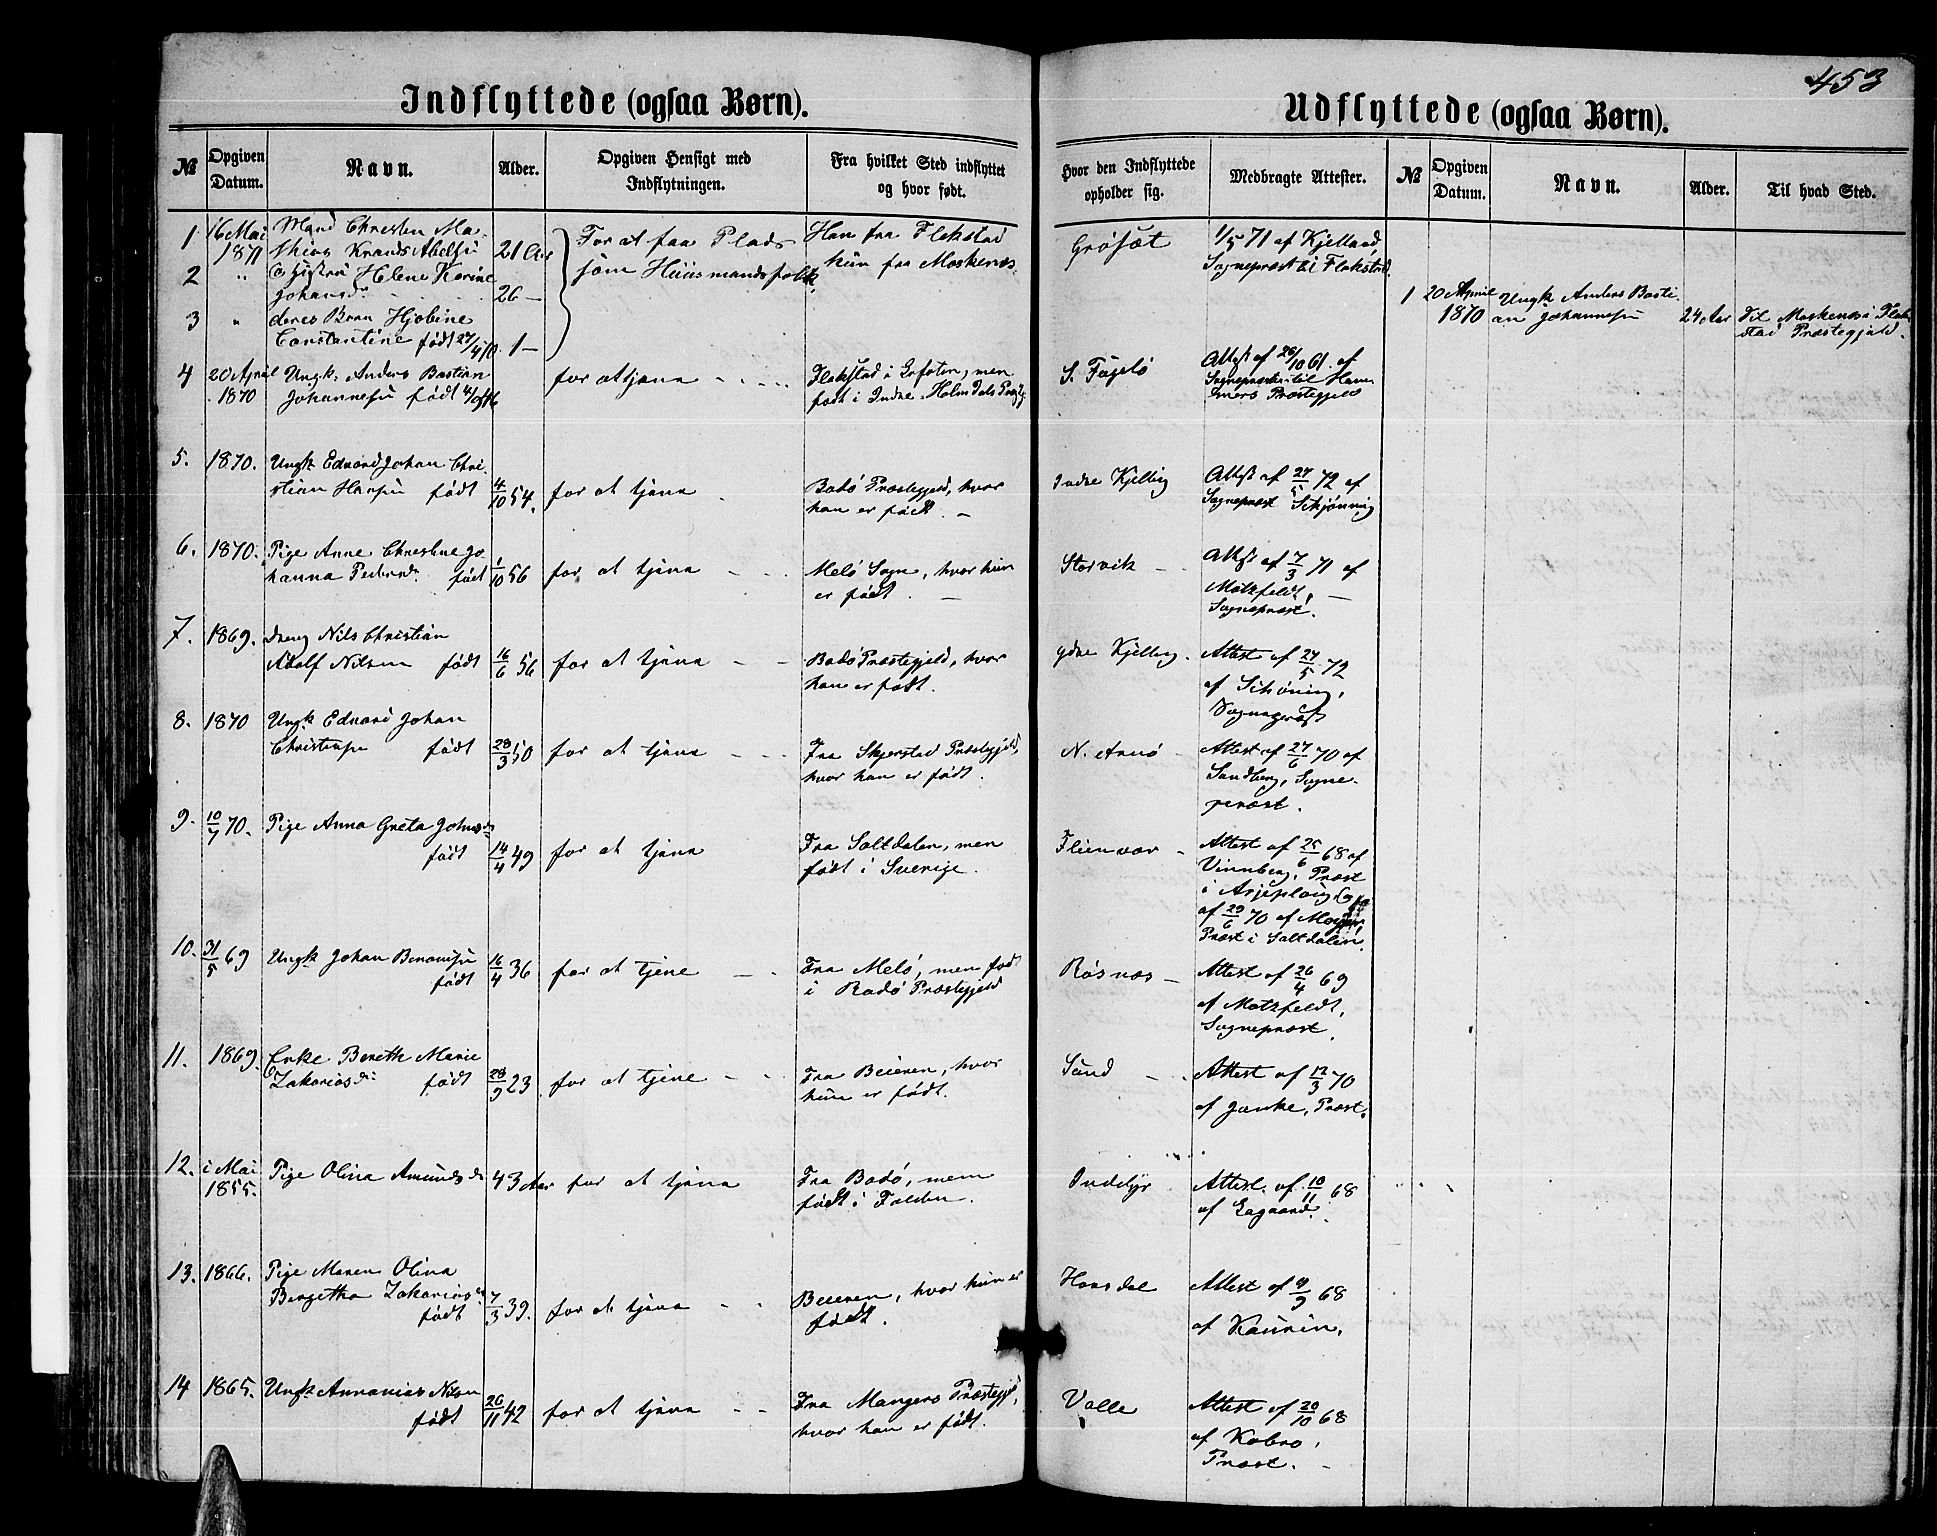 453
Indflyttede (ogsaa Børn).
Udflyttede (ogsaa Børn).
№ Opgiven Datum. Navn. Alder. Opgiven Hensigt med Indflytningen. Fra hvilket Sted indflyttet og hvor født. Hvor den Indflyttede opholder sig. Medbragte Attester.
№ Opgiven Datum. Navn. Alder. Til hvad Sted.
1 16 Mai 1871 Mand Christen Ma-
thias Abelsen 21 Aar For at faa Plads som Huusmandsfolk Han fra Flakstad hun fra Moskenæs. Grøsæt 1/5 71 af Kjelland Sognepræst til Flakstad
2 " Helene Karine
Johansdr. 26 —
3 " deres Barn Hjobine
Constantine født 27/4 70. 1 —
4 20 April 1870 Ungk: Anders Bastian
Johannesen født for at tjene Flakstad i Lofoten, men
født i Indre Holmdals Præstg. S. Fugelø Attest af 26/10 61. af
Sognepræsten til Ham-
mers Præstegjeld
1 20 April 1870 Ungk Anders Basti-
an Johannesen 24 Aar Til Moskenæs i Flak-
stad Præstegjeld.
5. 1870. Ungk Edvard Johan Chri-
stian Hansen født 4/10 54. for at tjene Bodø Præstegjeld, hvor
han er født. — Indre Kjelling Attest af 27/5 72 af
Sognepræst Schjønning
6. 1870. Pige Anne Christine Jo-
hanna Pedersdr. født 1/10 56 for at tjene Melø Sogn, hvor hun
er født. — Storvik Attest af 7/3 71 af
Motzfeldt, —
Sognepræst.
7. 1869. Dreng Nils Christian
Adolf Nilsen født 16/6 56 for at tjene Bodø Præstegjeld, hvor
han er født. Ydre Kjelling. Attest af 27/5 72
af Schøning,
Sognepræst
8. 1870 Ungk Edvard Johan
Christensen født 28/3 50 for at tjene Fra Skjerstad Præstegjeld,
hvor han er født. N. Arnø Attest af 27/6 70 af
Sandberg, Sogne-
præst.
9. 10/7 70. Pige Anna Greta Johnsdr
født 14/4 49 for at tjene Fra Saltdalen, men
født i Sverige. Fleinvær Attest af 25/6 68 af
Vinnberg, Præst
i Arjeploug og
af 29/6 70 af
Præst i Saltdalen.
10. 31/5 69 Ungk Johan Benonisen
født 16/4 36 for at tjene Fra Melø, men født
i Bodø Præstegjeld Røsnæs Attest af 26/4 69
af Motzfeldt,
Sognepræst.
11. 1869. Enke Bereth Marie
Zakariasdr: født 28/9 23 for at tjene Fra Beieren, hvor
hun er født. Sund Attest af 12/3 70
af Janke, Præst.
12. i Mai 1855. Pige Olina Amundsdr 43 Aar for at tjene Fra Bodø, men
født i Folden. Indedyr Attest af 10/11 68
af Eagaard.
13. 1866. Pige Maren Olina
Bergetha Zakariasdr
født 7/3 39. for at tjene Beieren, hvor hun er
født. Horsdal Attest af 9/9 68
af Kaurin.
14 1865. Ungk Annanias Nilsen
født 26/11 42 for at tjene Fra Mangers Præstegjeld,
hvor han er født. Valle Attest af 20/10 68
af Kobro,
Præst.